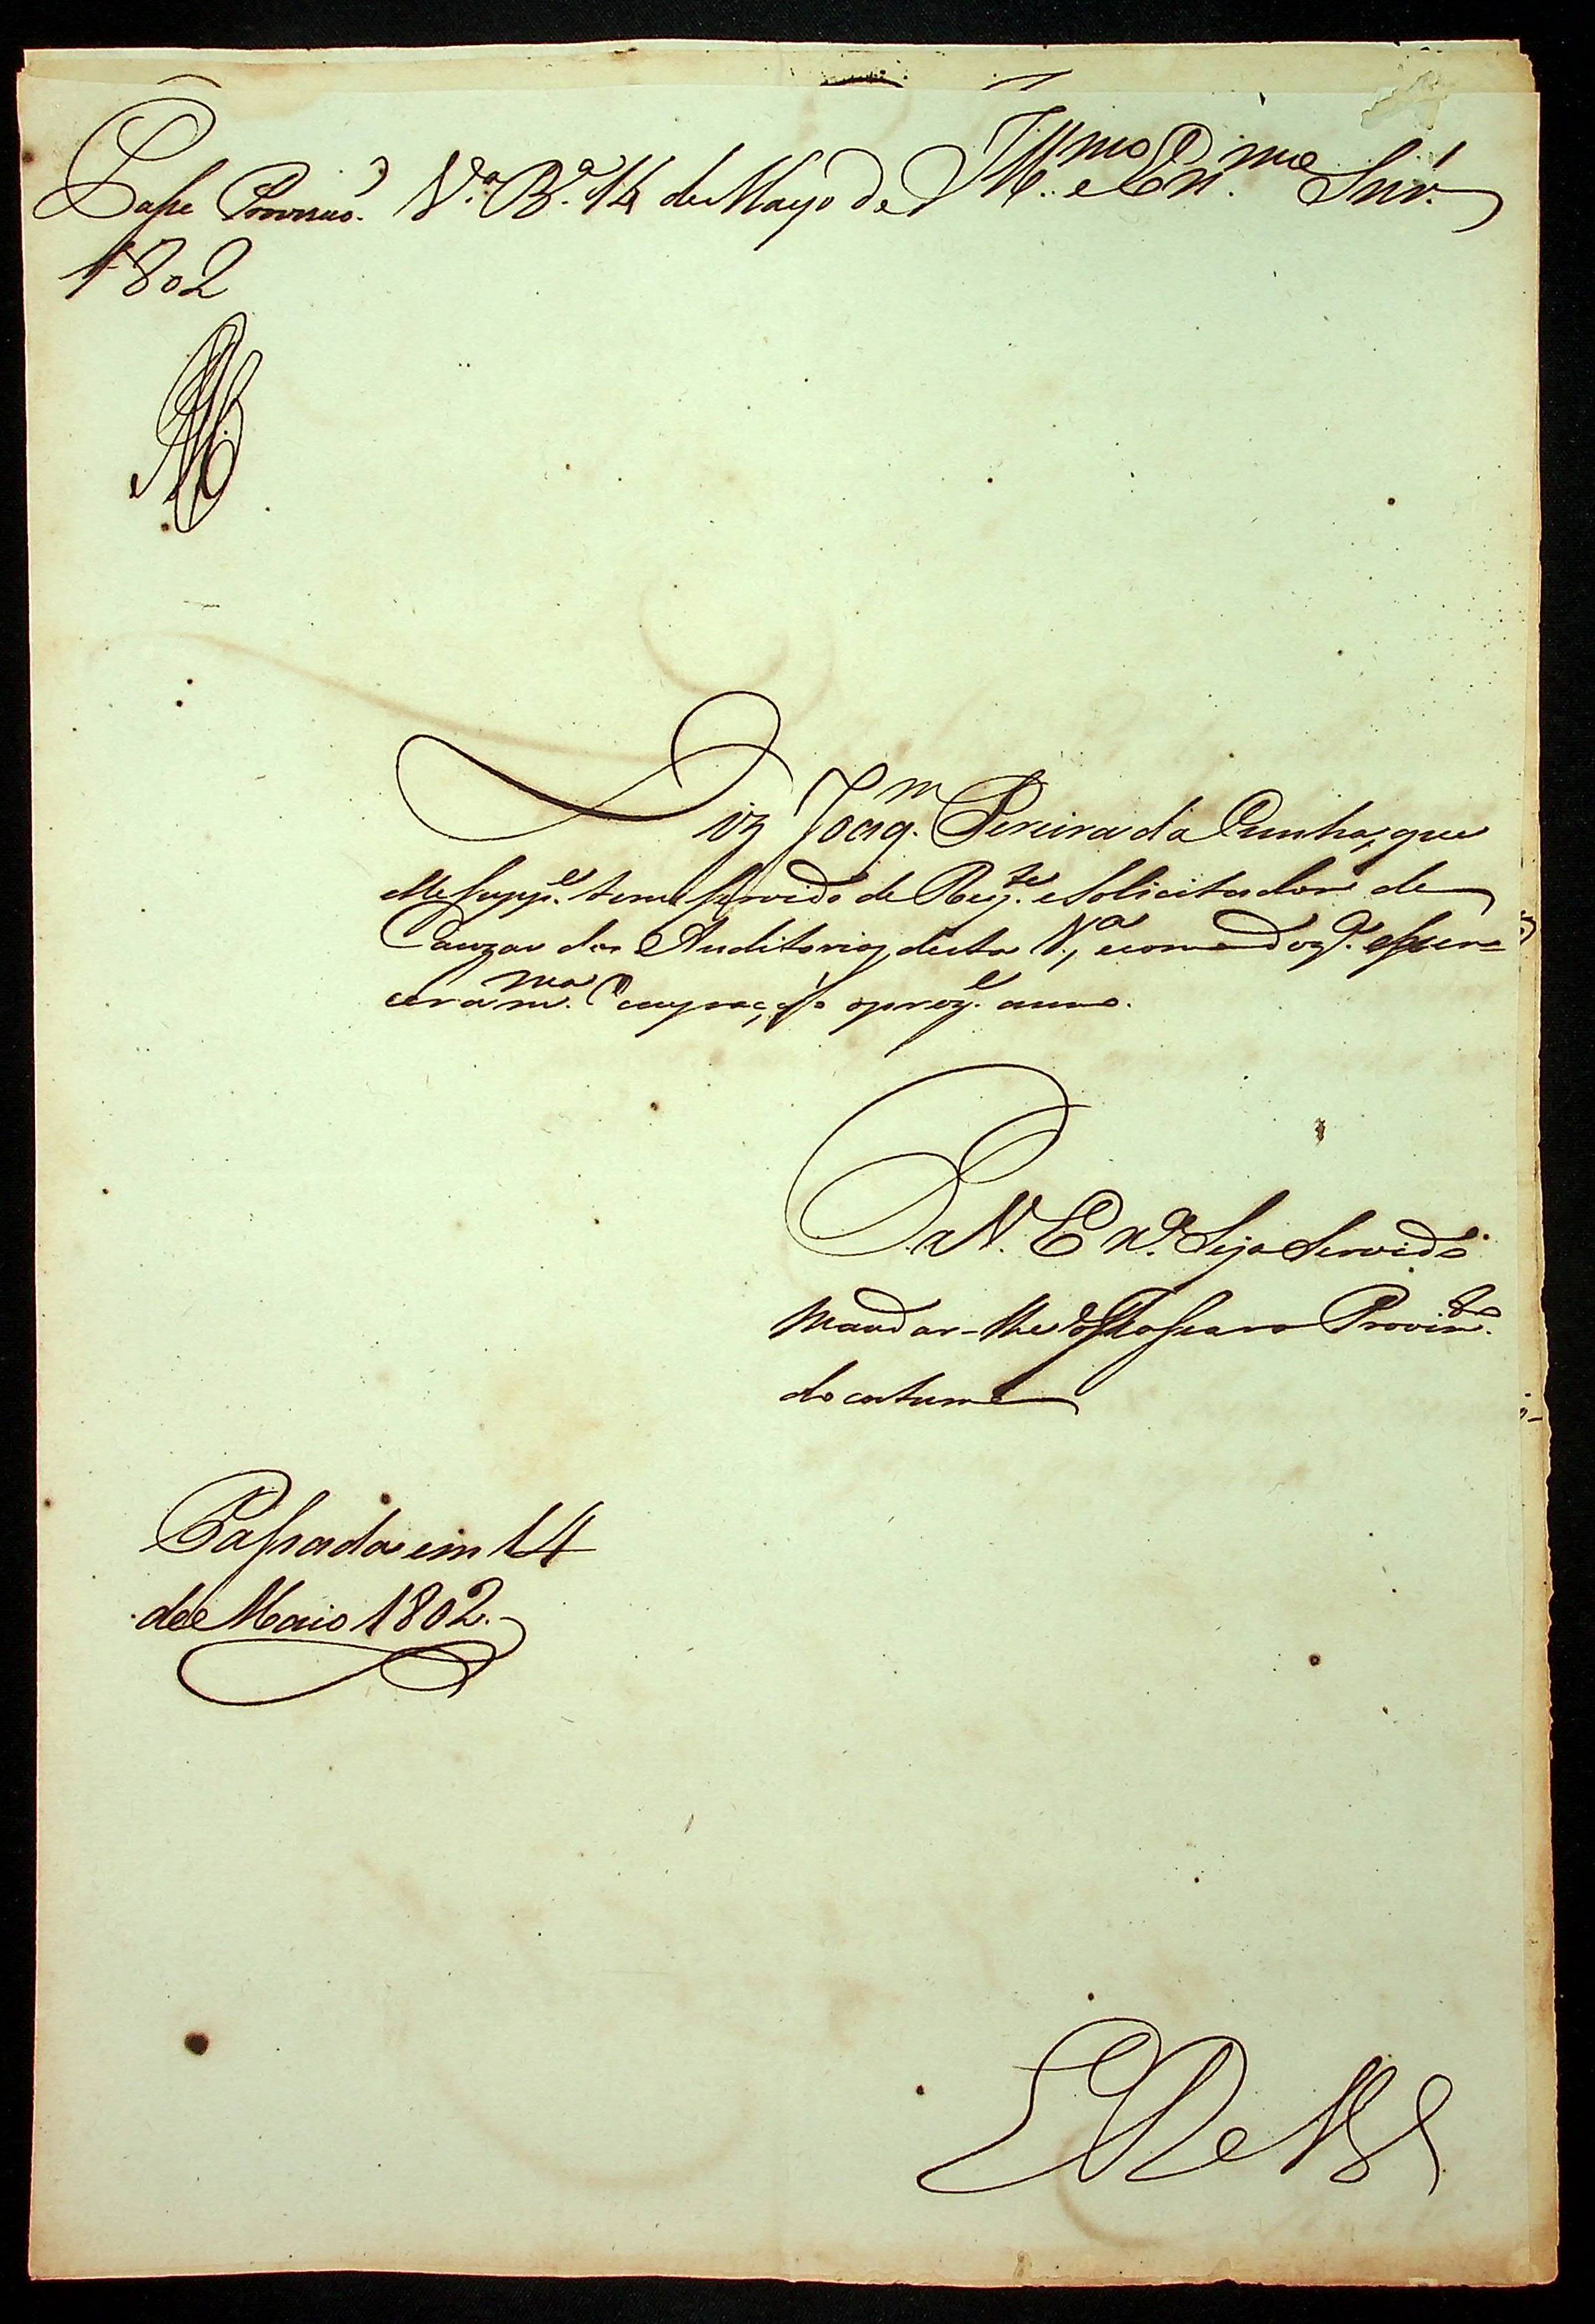 Passe Provisaõ. V.ª B.ª 14 de Mayo de
1802
Ill.mo e Ex.mo Snr.
Diz Joaq.m Pereira da Cunha, que
elle Supp.e tem Servido de Req.te e Solicitador de
Cauzas dos Auditorios desta V.ª, e como dez.ª exer=
cer a m.ma Ocupação o prez.e anno.
P. a V. Ex.ª Seja Servido
mandar-lhe passar Provim.to
do costume
Passada em 14
de Maio 1802.
E R M.ce